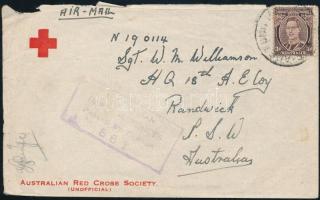 AIR-MAIL
N190114
Sgt. W. M. Williamson
HQ 18th A.E Coy
Randwick
S.S.W
Australia
AUSTRALIA
AUSTRALIAN RED CROSS SOCIETY.
(UNOFFICIAL)